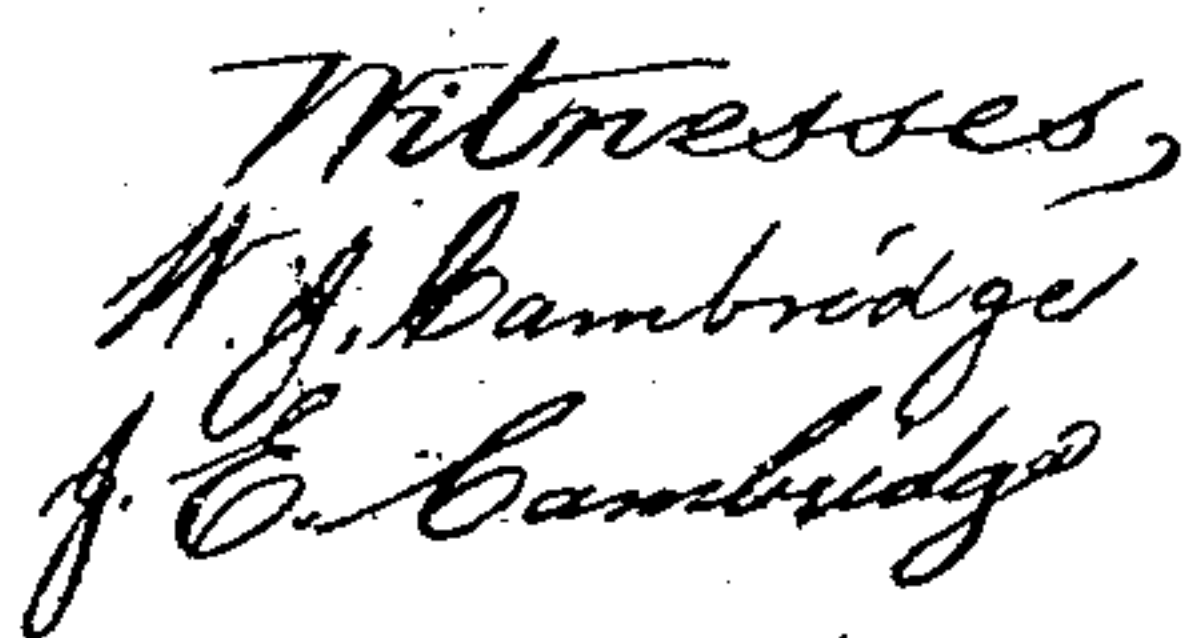 Witnesses,
W. J. Cambridge
J. E. Cambridge